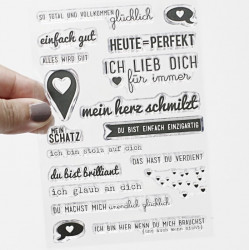 SO TOTAL UND VOLLKOMMEN glücklich
einfach gut
ALLES WIRD GUT
HEUTE=PERFEKT
ICH LIEB DICH
für immer
mein herz schmilzt
MEIN
SCHATZ
DU BIST EINFACH EINZIGARTIG
ich bin stolz auf dich
du bist brilliant
DAS HAST DU VERDIENT
ich glaub an dich
DU MACHST MICH unendlich glücklich
ICH BIN HIER WENN DU MICH BRAUCHST
(ODER WENN NICHT)